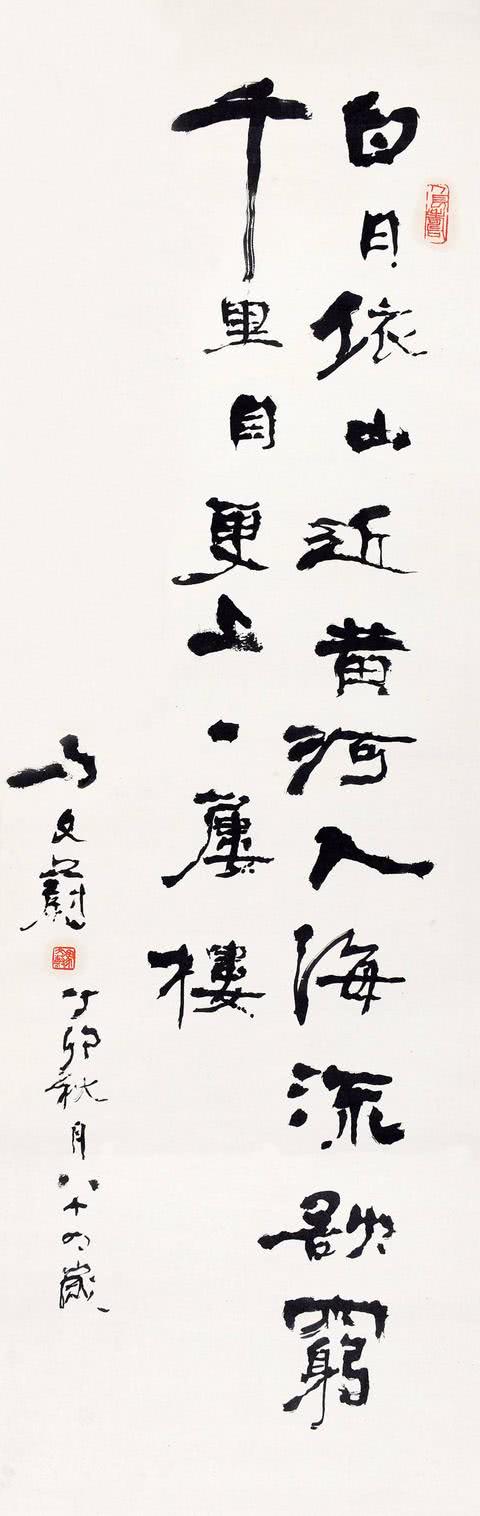 白日依山近黄河入海流欲窮
千里目更上一層樓
馬文蔚
丁卯秋月八十四歲